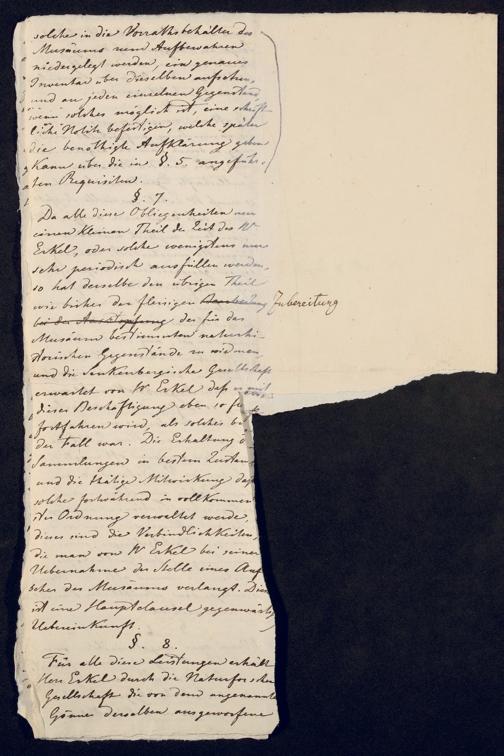 solche in die Vorrathsbehälter des
Musäums zum Aufbewahren
niedergelegt werden, ein genaues
Inventar über dieselben aufsehen,
und an jeden einzelnen Gegenstand,
wenn solches möglich ist, eine schrift-
liche Notitz befestigen, welche später
die benöthigte Aufklärung geben
kann über die in §. 5. angeführ-
ten Requisiten.
§. 7.
Da alle diese Obliegenheiten nur
einen kleinen Theil der Zeit des Hr
Erkel, oder solche wenigstens nur
sehr periodisch ausfüllen werden,
so hat derselbe den übrigen Theil
wie bisher der fleisigen Zubereitung
bei der Ausstopfung der für das
Musäum bestimmten naturhi-
storischen Gegenstände zu widmen,
und die Senkenbergische Gesellschaft
erwartet von Hr Erkel daß er mit
dieser Beschäftigung eben so
fortfahren wird, als solches bis
der Fall war. Die Erhaltung d
Sammlungen in bestem Zustan
und die thätige Mitwirkung daß
solche fortwährend in vollkommen
ster Ordnung verwaltet werde,
dieses sind die Verbindlichkeiten,
die man von Hr Erkel bei seiner
Uebernahme der Stelle eines Auf
sehers des Musäums verlangt. Dies
ist eine Hauptclausel gegenwärt
Uebereinkunft.
§. 8.
Für alle diese Leistungen erhält
Herr Erkel durch die Naturforschen
Gesellschaft die von dem ungenannten
Gönner derselben ausgeworfene